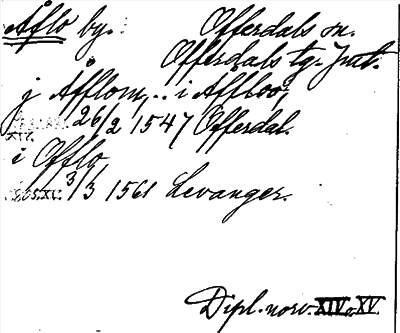 Åflo by. Offerdals sn.
Offerdals tg. Jmt.
j Åfflom, .. i Åffloo,
26/2 1547 Offerdal.
i Offlo,
3/3 1561 Levanger.
Dipl. norv. XIV o. XV.